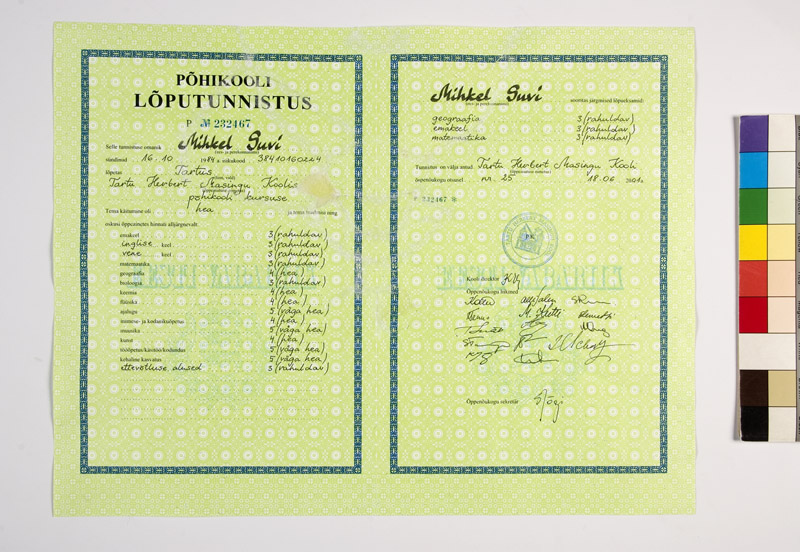 PÕHIKOOLI
LÕPUTUNNISTUS
P № 232467
Selle tunnistuse omanik Mihkel Suvi
(ees- ja perekonnanimi)
sündinud 16.10 1984 a. isikukood 38410160224
lõpetas Tartus
Tartu Herbert Masingu Koolis
põhikooli kursuse.
Tema käitumine oli hea ja tema teadmisi ning
oskusi õppeainetes hinnati alljärgnevalt:
emakeel 3 (rahuldav)
inglise keel 3 (rahuldav)
vene keel 3 (rahuldav)
matemaatika 3 (rahuldav)
geograafia 4 (hea)
bioloogia 3 (rahuldav)
keemia 4 (hea)
füüsika 4 (hea)
ajalugu 5 (väga hea)
inimese- ja kodanikuõpetus 4 (hea)
muusika 5 (väga hea)
kunst 4 (hea)
tööõpetus/käsitöö/kodundus 5 (väga hea)
kehaline kasvatus 5 (väga hea)
ettevõtluse alused 3 (rahuldav)
Mihkel Suvi sooritas järgmised lõpueksamid:
(ees- ja perekonnanimi)
geograafia 3 (rahuldav)
emakeel 3 (rahuldav)
matemaatika 3 (rahuldav)
Tunnistus on välja antud Tartu Herbert Masingu Kooli
õppenõukogu otsusel nr. 25 18.06 2001.a.
P 232467 *
Kooli direktor
Õppenõukogu liikmed
Õppenõukogu sekretär